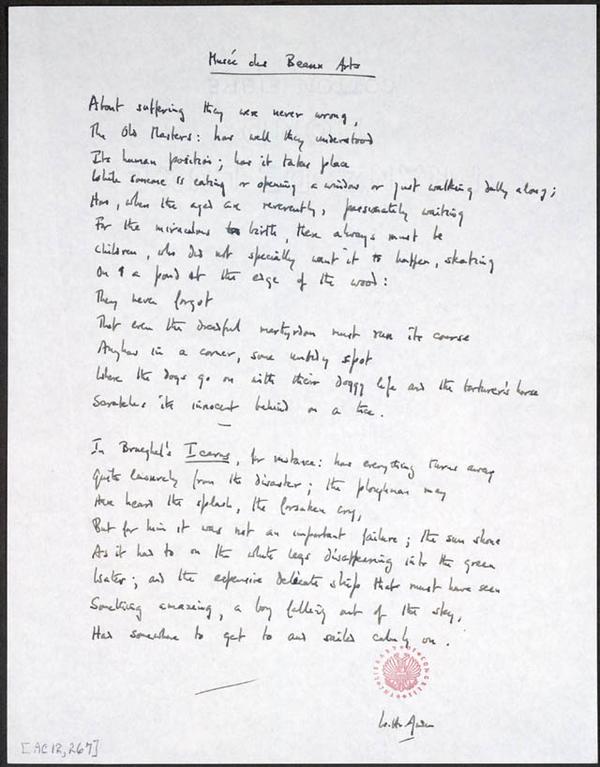 Musée des Beaux Arts
About suffering they were never wrong,
The Old Masters: how well they understood
Its human position; how it takes place
While someone is eating or opening a window or just walking dully along;
How, when the aged are reverently, passionately waiting
For the miraculous birth, there always must be
Children, who did not specially want it to happen, skating
On a pond at the edge of the wood:
They never forgot
That even the dreadful martyrdom must run its course
Anyhow in a corner, some untidy spot
Where the dogs go on with their doggy life and the torturer's horse
Scratches its innocent behind on a tree.
In Brueghel's Icarus, for instance: how everything turns away
Quite leisurely from the disaster; the ploughman may
Have heard the splash, the forsaken cry,
But for him it was not an important failure; the sun shone
As it had to on the white legs disappearing into the green
Water; and the expensive delicate ship that must have seen
Something amazing, a boy falling out of the sky,
Had somewhere to get to and sailed calmly on.
THE LIBRARY OF CONGRESS
W.H. Auden
[AC 12,267]